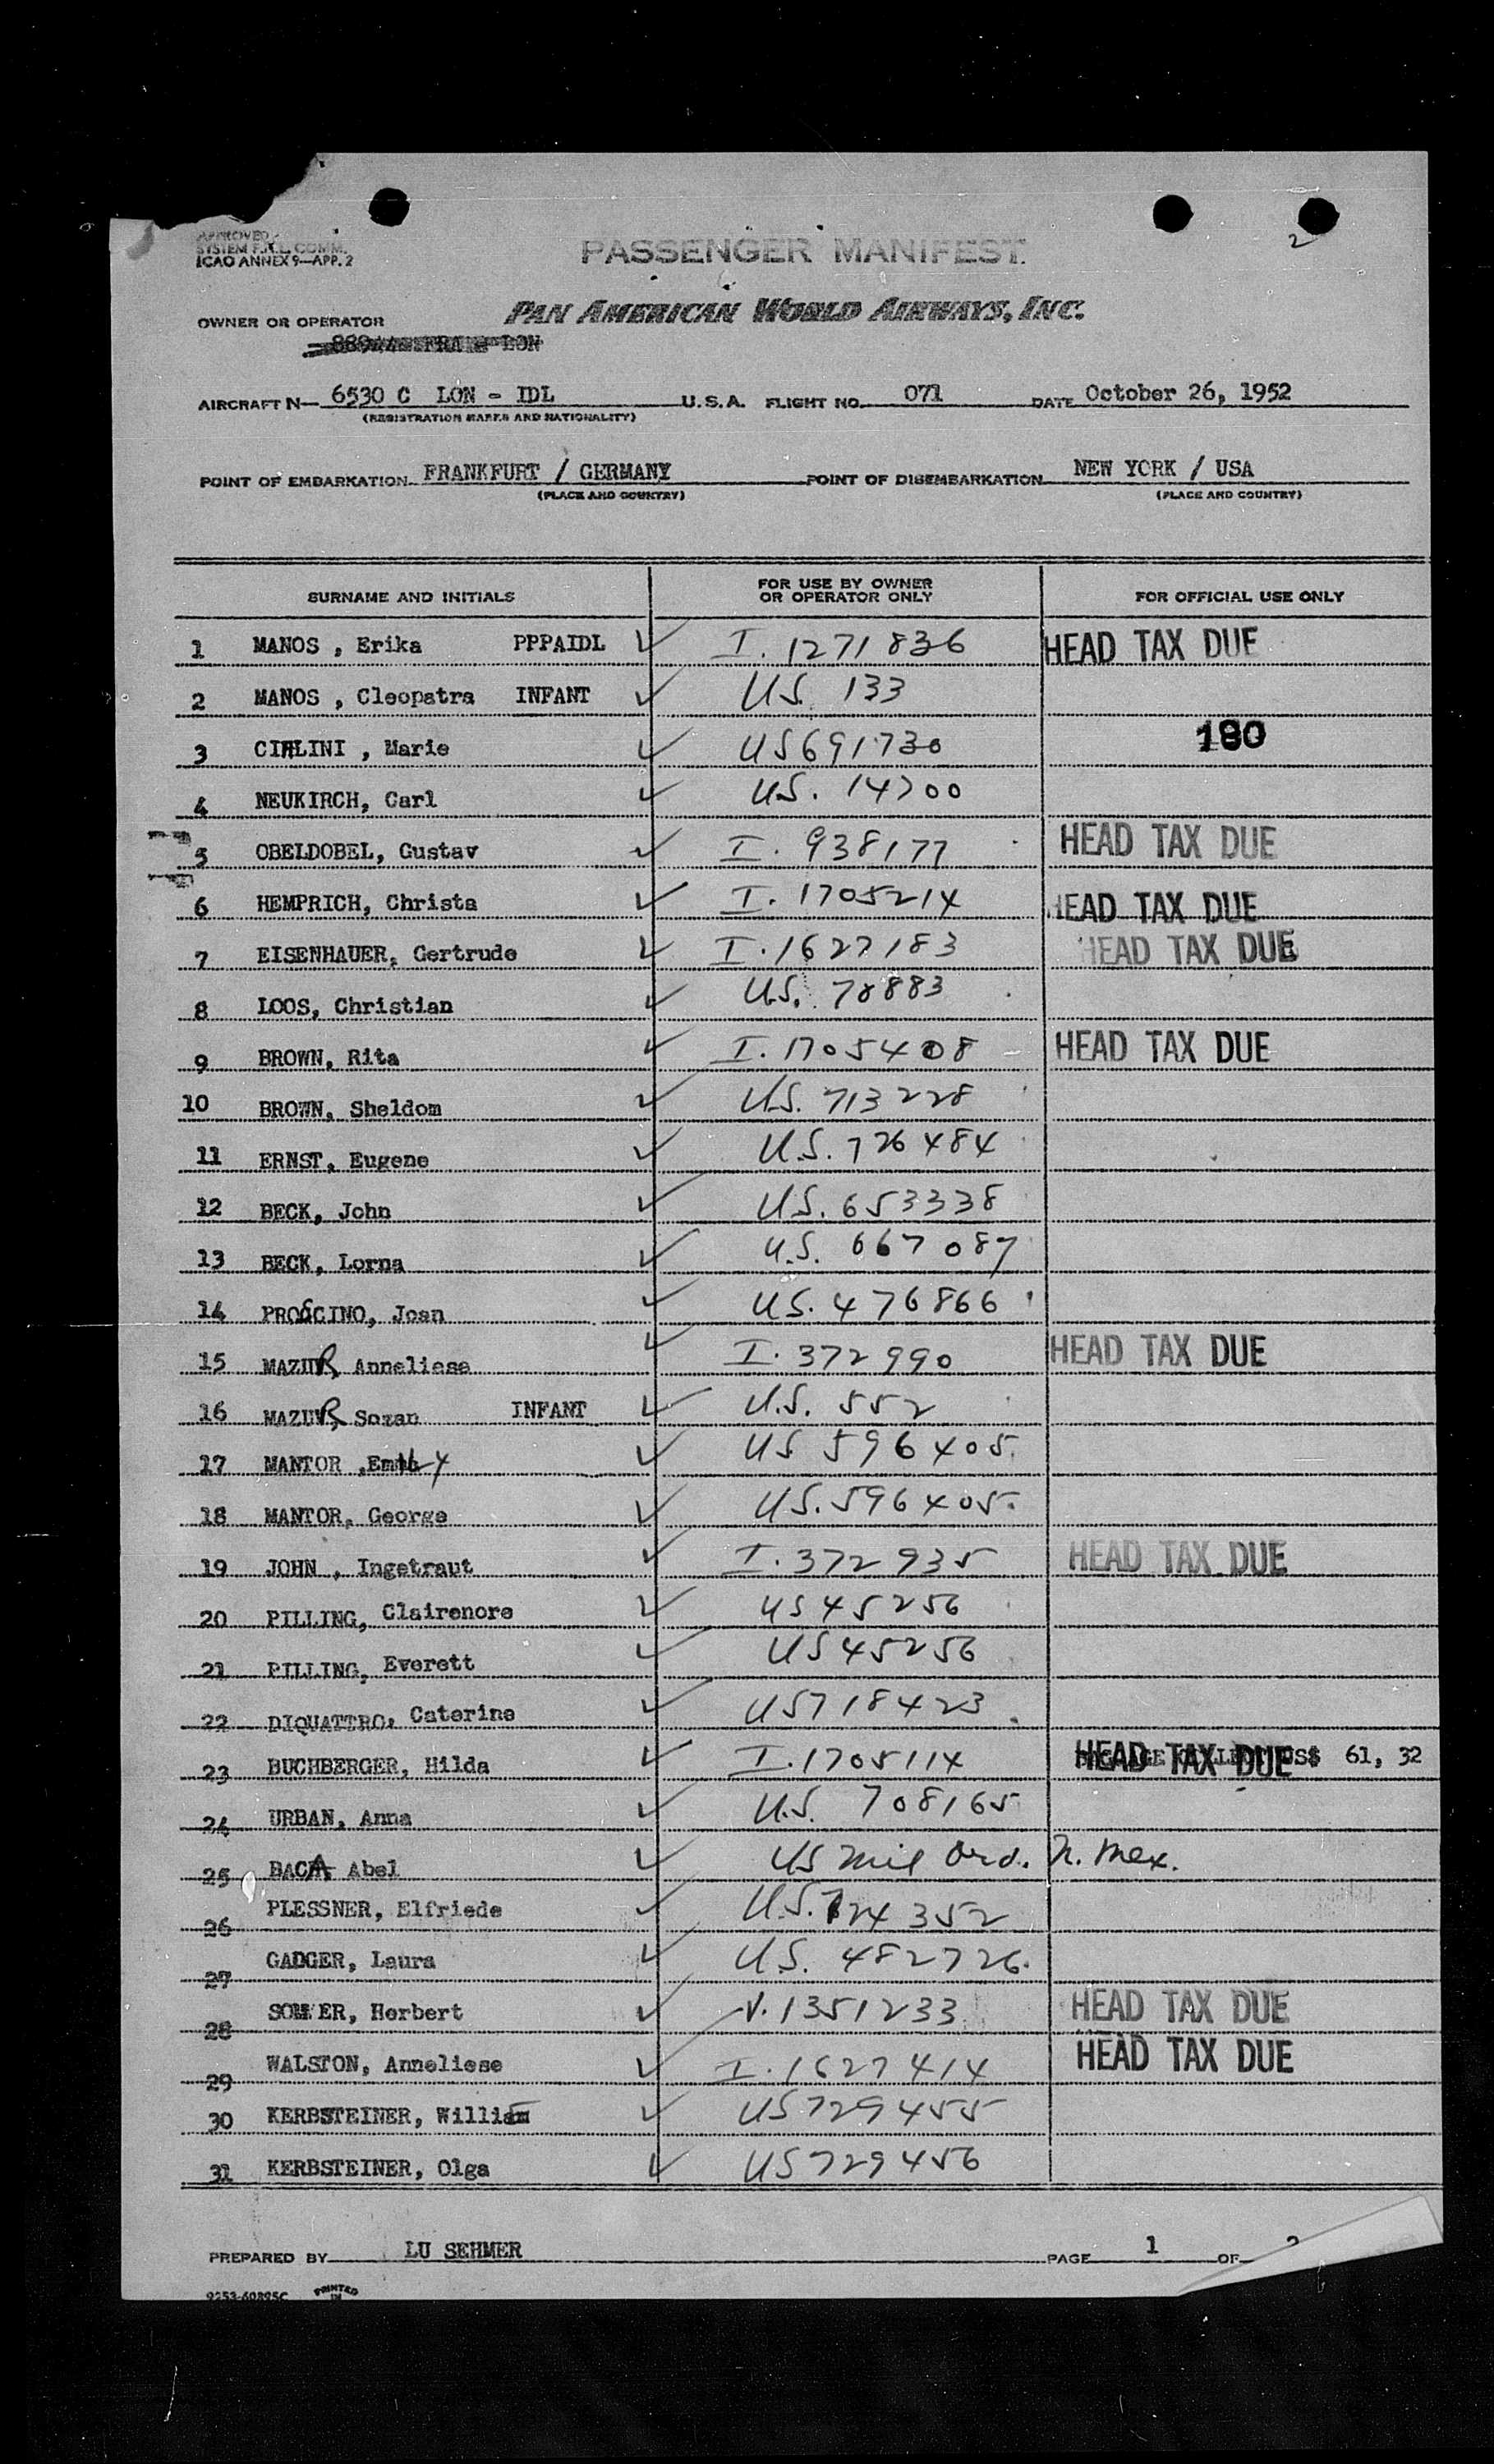 2
APPROVED
SYSTEM F.A.L. COMM.
ICAO ANNEX 9—APP. 2
PASSENGER MANIFEST
PAN AMERICAN WORLD AIRWAYS, INC.
OWNER OR OPERATOR
AIRCRAFT N— 6530 C LON - IDL U.S.A. FLIGHT NO. 071 DATE October 26, 1952
(REGISTRATION MARKS AND NATIONALITY)
POINT OF EMBARKATION FRANKFURT / GERMANY POINT OF DISEMBARKATION NEW YORK / USA
(PLACE AND COUNTRY) (PLACE AND COUNTRY)
SURNAME AND INITIALS FOR USE BY OWNER OR OPERATOR ONLY FOR OFFICIAL USE ONLY
1 MANOS , Erika PPPAIDL ✓ I. 1271836 HEAD TAX DUE
2 MANOS , Cleopatra INFANT ✓ US. 133
3 CIRLINI , Marie ✓ US691730 180
4 NEUKIRCH, Carl ✓ US. 14700
5 OBELDOBEL, Gustav ✓ I. 938177 HEAD TAX DUE
6 HEMPRICH, Christa ✓ I. 1705214 HEAD TAX DUE
7 EISENHAUER, Gertrude ✓ I. 1627183 HEAD TAX DUE
8 LOOS, Christian ✓ U.S. 78883
9 BROWN, Rita ✓ I. 1705408 HEAD TAX DUE
10 BROWN, Sheldom ✓ U.S. 713228
11 ERNST, Eugene ✓ U.S. 726484
12 BECK, John ✓ U.S. 653338
13 BECK, Lorna ✓ U.S. 667087
14 PROSCINO, Joan ✓ U.S. 476866
15 MAZUR, Anneliese ✓ I. 372990 HEAD TAX DUE
16 MAZUR, Sozan INFANT ✓ U.S. 552
17 MANTOR ,Emily ✓ US 596405
18 MANTOR, George ✓ US. 596405
19 JOHN , Ingetraut ✓ I. 372935 HEAD TAX DUE
20 PILLING, Clairenore ✓ US 45256
21 PILLING, Everett ✓ US 45256
22 DIQUATTRO, Caterine ✓ US718423
23 BUCHBERGER, Hilda ✓ I. 1705114 HEAD TAX DUE US$ 61, 32
24 URBAN, Anna ✓ U.S. 708165
25 BACA, Abel ✓ US Mil Ord. N. Mex.
26 PLESSNER, Elfriede ✓ U.S. 724352
27 GADGER, Laura ✓ U.S. 482726
28 SOMMER, Herbert ✓ V. 1351233 HEAD TAX DUE
29 WALSTON, Anneliese ✓ I. 1627414 HEAD TAX DUE
30 KERBSTEINER, William ✓ US729455
31 KERBSTEINER, Olga ✓ US729456
PREPARED BY LU SEHMER PAGE 1 OF
PRINTED
IN